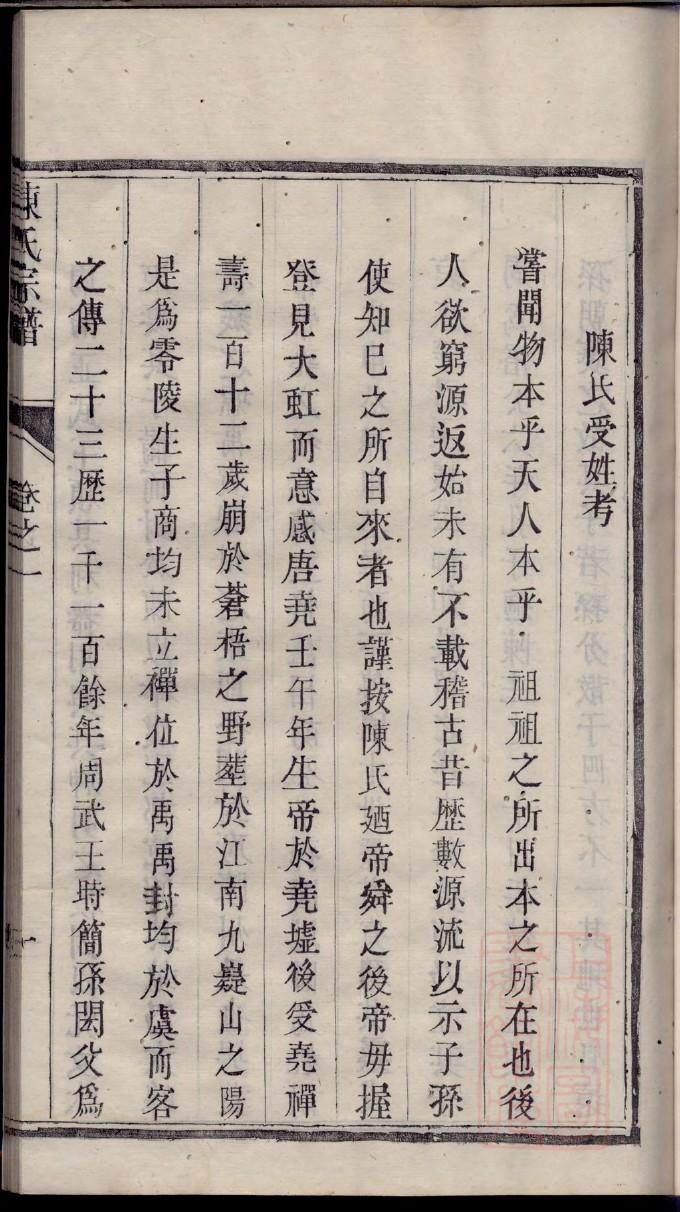 陳氏受姓考
嘗聞物本乎天人本乎祖祖之所出本之所在也後
人欲窮源返始未有不載稽古昔歷數源流以示子孫
使知巳之所自來者也謹按陳氏廼帝舜之後帝毋握
登見大虹而意感唐堯壬午年生帝於堯墟後受堯禪
壽一百十二歲崩於蒼梧之野塟於江南九嶷山之陽
是爲零陵生子商均未立禪位於禹禹封均於虞而客
之傳二十三歷一千一百餘年周武王時簡孫閼父爲
陳氏宗譜
卷之一